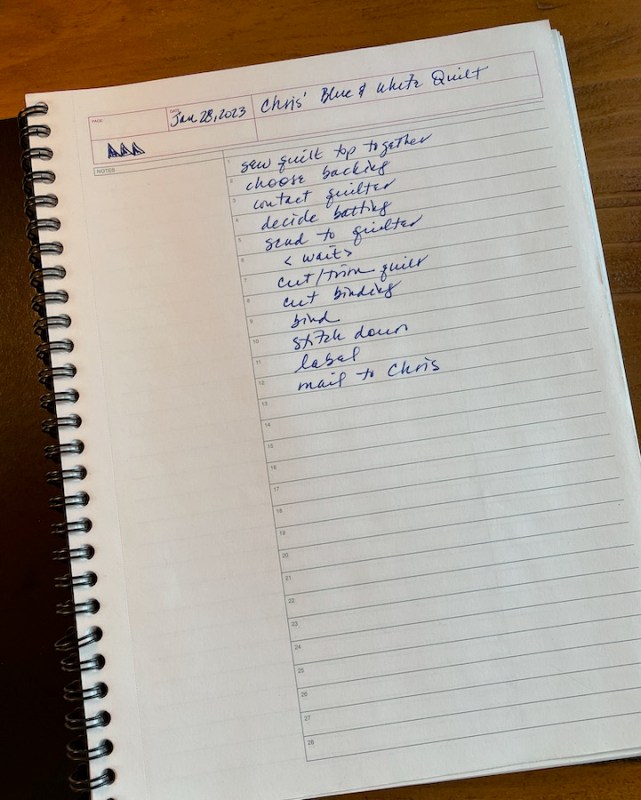 PAGE
DATE
Jan 28, 2023
Chris' Blue & White Quilt
NOTES
1 sew quilt top together
2 choose backing
3 contact quilter
4 decide batting
5 send to quilter
6 < wait >
7 cut/trim quilt
8 cut binding
9 bind
10 stitch down
11 label
12 mail to Chris
13
14
15
16
17
18
19
20
21
22
23
24
25
26
27
28